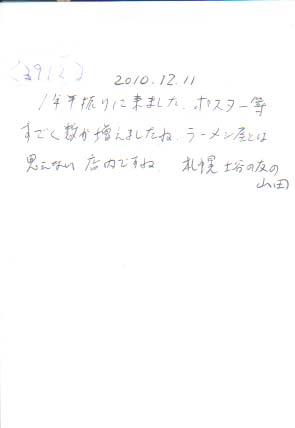 (3912)
2010.12.11
1年半振りに来ました。ポスター等
すごく数が増えましたね。ラーメン屋とは
思えない店内ですね。 札幌 土谷の友の
山田